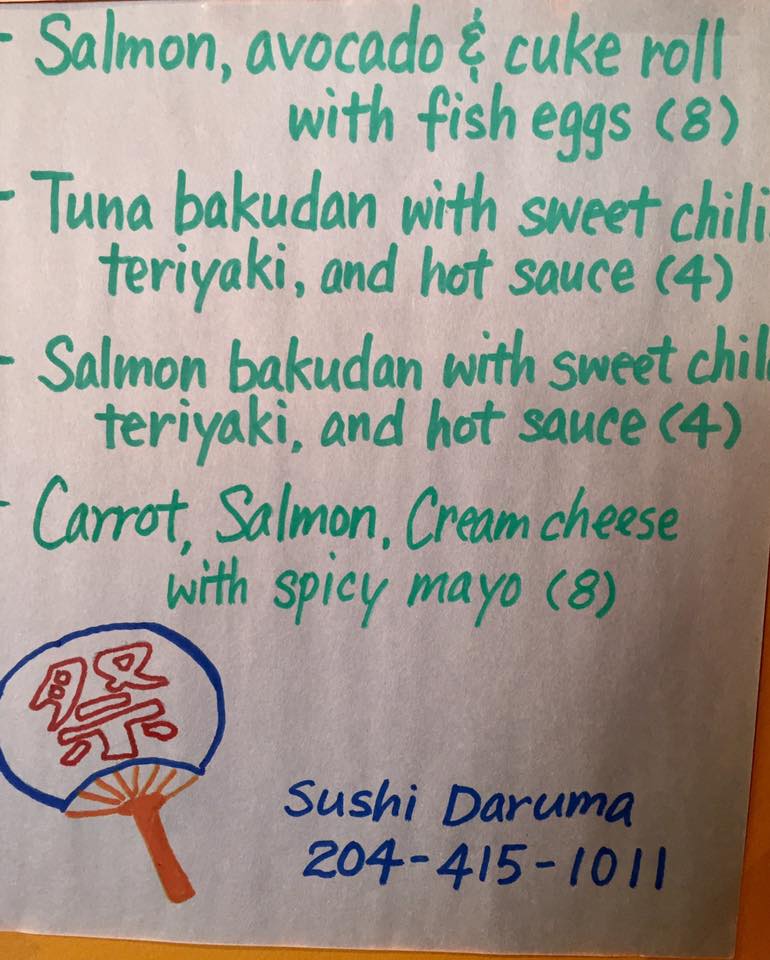 - Salmon, avocado & cuke roll
with fish eggs (8)
- Tuna bakudan with sweet chili
teriyaki, and hot sauce (4)
- Salmon bakudan with sweet chil
teriyaki, and hot sauce (4)
- Carrot, Salmon, Cream cheese
with spicy mayo (8)
祭
Sushi Daruma
204-415-1011